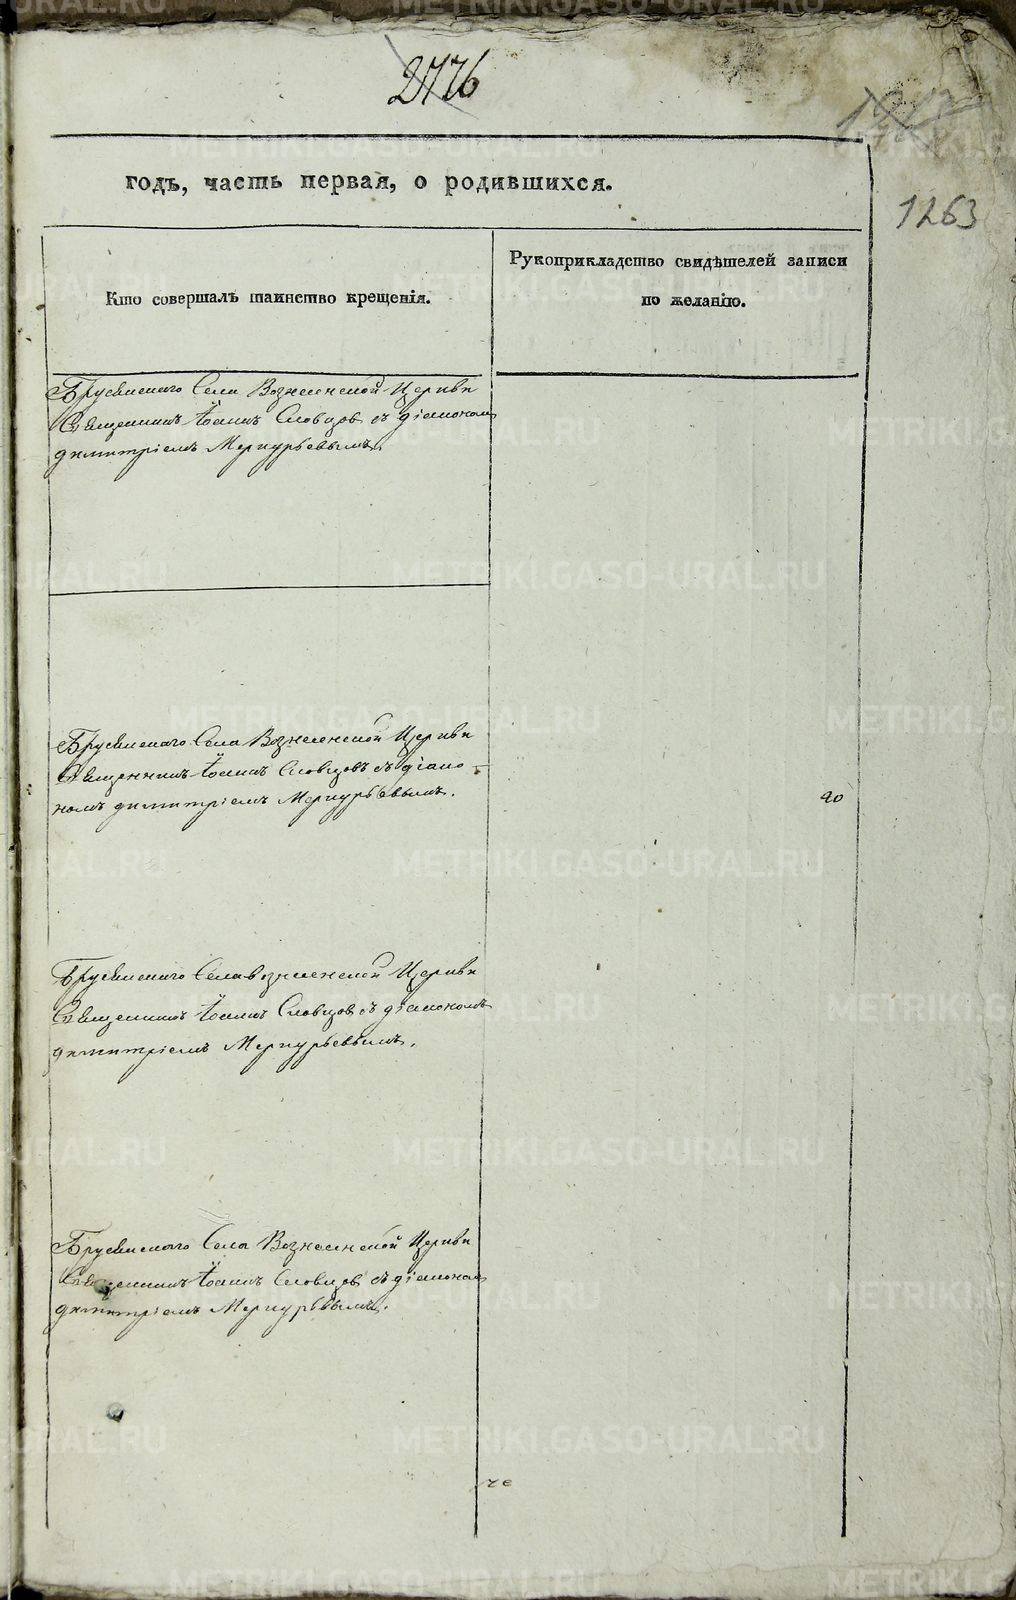 2776
1263
годъ, часть первая, о родившихся.
Кто совершалъ таинство крещенія.
Рукоприкладство свидѣтелей записи
по желанію.
Брусянскаго Села Вознесенской Церкви
Священникъ Іоаннъ Словцовъ съ діакономъ
димитріемъ Меркурьевымъ.
Брусянскаго Села Вознесенской Церкви
Священникъ Іоаннъ Словцовъ съ діако-
номъ димитріемъ Меркурьевымъ.
до
Брусянскаго Села вознесенской Церкви
Священникъ Іоаннъ Словцовъ съ діакономъ
димитріемъ Меркурьевымъ.
Брусянскаго Села Вознесенской Церкви
Священникъ Іоаннъ Словцовъ съ діакономъ
димитріемъ Меркурьевымъ.
METRIKI.GASO-URAL.RU